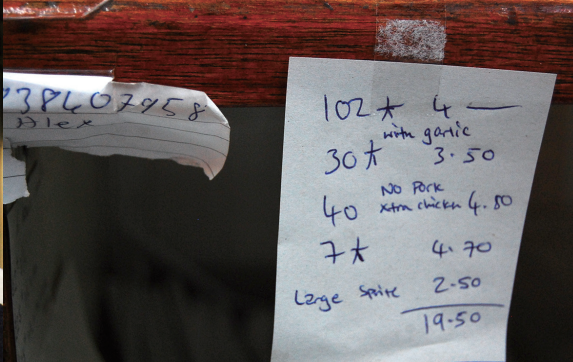 38407958
Alex
102 * 4 —
with garlic
30 * 3.50
No Pork
40 xtra chickn 4.80
7 * 4.70
Large Sprite 2.50
19.50